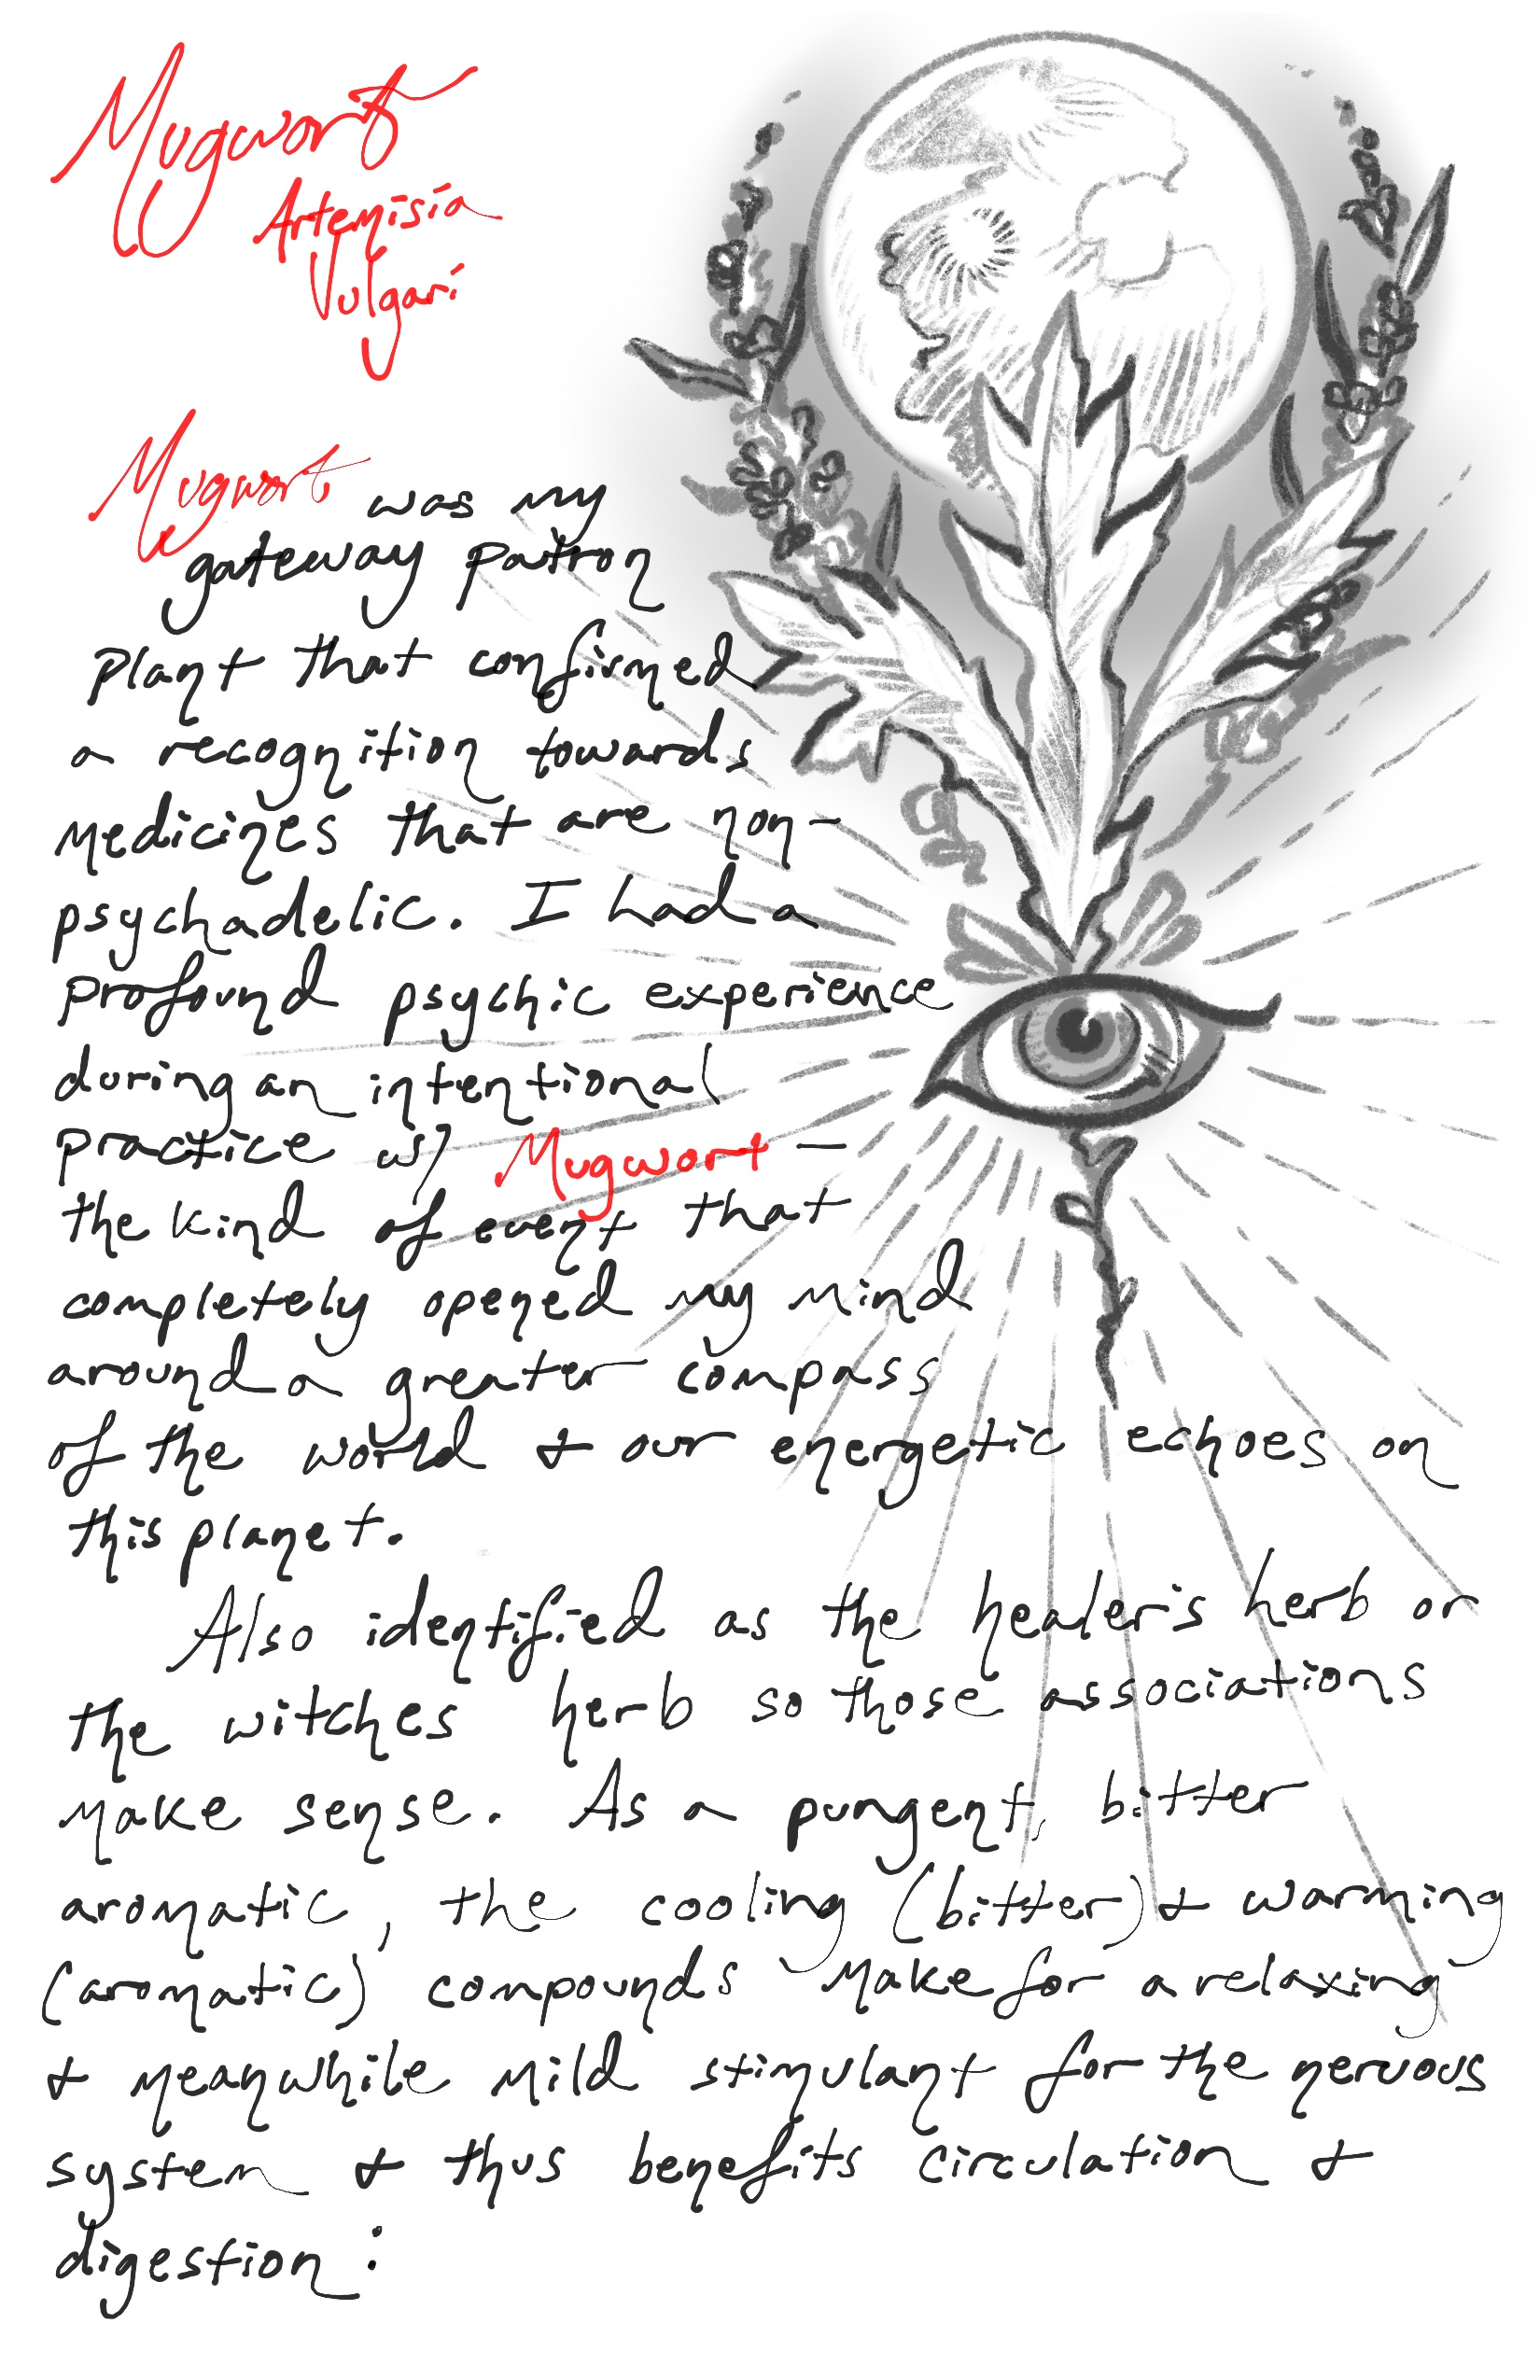 Mugwort
Artemisia
Vulgari
Mugwort was my
gateway patron
plant that confirmed
a recognition towards
medicines that are non-
psychadelic. I had a
profound psychic experience
during an intentional
practice w/ Mugwort —
the kind of event that
completely opened my mind
around a greater compass
of the world & our energetic echoes on
this planet.
Also identified as the healer's herb or
the witches herb so those associations
make sense. As a pungent, bitter
aromatic, the cooling (bitter) & warming
(aromatic) compounds make for a relaxing
& meanwhile mild stimulant for the nervous
system & thus benefits circulation &
digestion: